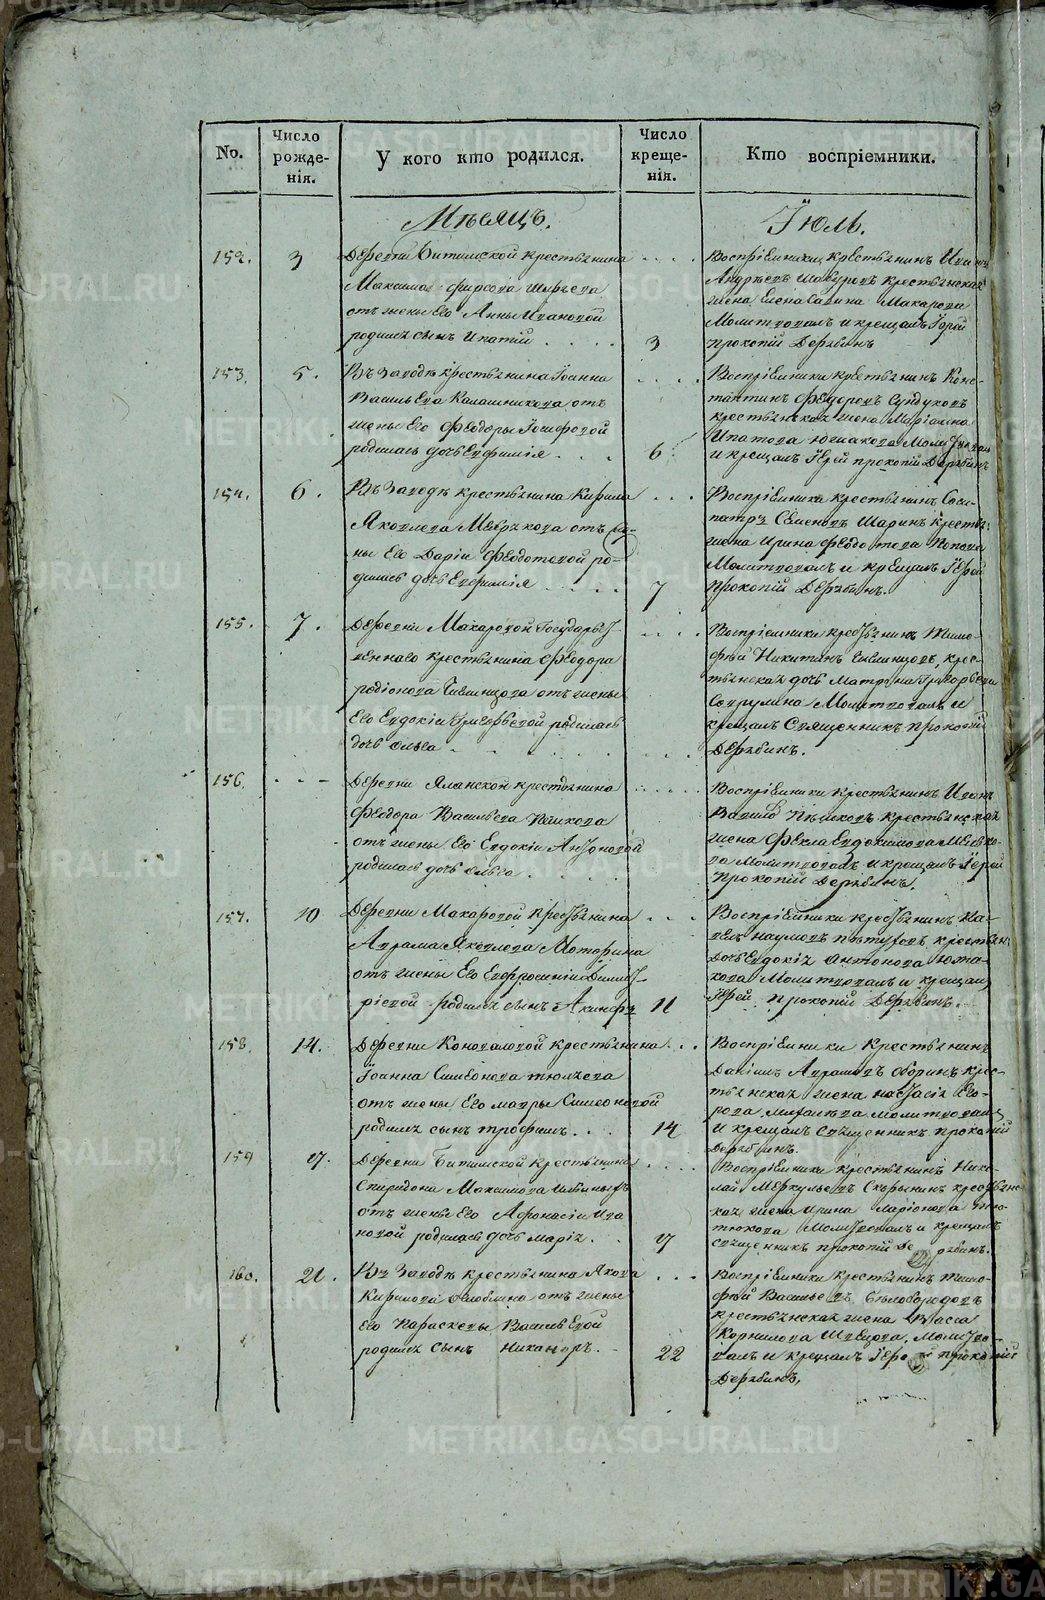 No.
Число рожде-нія.
У кого кто родился.
Число креще-нія.
Кто воспріемники.
Мѣсяцъ.
Іюль.
152.
3
Деревни Битимской крестьянина
Максима Фирсова
отъ жены его Анны Ивановой
родился сынъ Ипатій
3
Воспріемники крестьянинъ
Андреевъ крестьянская
жена Елена Савина Макарова
Молитвовалъ и крещалъ Іерей
Прокопій Дерябинъ
153.
5.
Въ Заводѣ крестьянина Іоанна
Васильева Калашникова отъ
жены его Феодоры Іосифовой
родилась дочь Евфимія
6
Воспріемники крестьянинъ Конс-
тантинъ Федоровъ Сундуковъ
крестьянская жена Маріамна
Ипатова
и крещалъ Іерей Прокопій Дерябинъ
154.
6.
Въ Заводѣ крестьянина Кирила
Яковлева отъ же-
ны его Даріи Феодотовой ро-
дилась дочь Евфимія
7
Воспріемники крестьянинъ Соси-
патръ Семеновъ Шаринъ
жена Ирина Феодотова Попова
Молитвовалъ и крещалъ Іерей
Прокопій Дерябинъ.
155.
7.
Деревни Макаровой Государст-
веннаго крестьянина Феодора
Родіонова отъ жены
его Евдокіи Григорьевой родилась
дочь Ольга
Воспріемники крестьянинъ Тимо-
фей Никитинъ крес-
тьянская дочь Матрона Григорьева
Молитвовалъ и
крещалъ Священникъ Прокопій
Дерябинъ.
156.
Деревни Яланской крестьянина
Феодора Васильева
отъ жены его Евдокіи Антоновой
родилась дочь Ольга
Воспріемники крестьянинъ Иванъ
крестьянская
жена Фекла Евдокимова
Молитвовалъ и крещалъ Іерей
Прокопій Дерябинъ.
157.
10
Деревни Макаровой крестьянина
Аврама Яковлева Моторина
отъ жены его Евфросиніи Димит-
ріевой родился сынъ Акинфъ
11
Воспріемники крестьянинъ
Наумовъ Пятуховъ крестьян.
дочь Евдокія Антонова Южа-
кова Молитвовалъ и крещалъ
Іерей Прокопій Дерябинъ.
158.
14.
Деревни Коноваловой крестьянина
Іоанна Симеонова
отъ жены его Мавры Симеоновой
родился сынъ Трофимъ.
14
Воспріемники крестьянинъ
Даніилъ Аврамовъ Оборинъ крес-
тьянская жена Настасія Его-
рова Молитвовалъ
и крещалъ Священникъ Прокопій
Дерябинъ.
159
17.
Деревни Битимской крестьянина
Спиридона Максимова
отъ жены его Афонасіи Ива
новой родилась дочь Марія.
17
Воспріемники крестьянинъ Нико-
лай Меркульевъ Скорынинъ
жена Ирина Ларіонова
Молитвовалъ и крещалъ
Священникъ Прокопій Дерябинъ.
160.
21.
Въ Заводѣ крестьянина Якова
Кирилова отъ жены
его Параскевы Васильевой
родился сынъ Никаноръ.
22
Воспріемники крестьянинъ Тимо-
фей Васильевъ Бѣлобородовъ
крестьянская жена Васса
Корнилова Швецова. Молитво-
валъ и крещалъ Іерей Прокопій
Дерябинъ.
METRIKI.GASO-URAL.RU